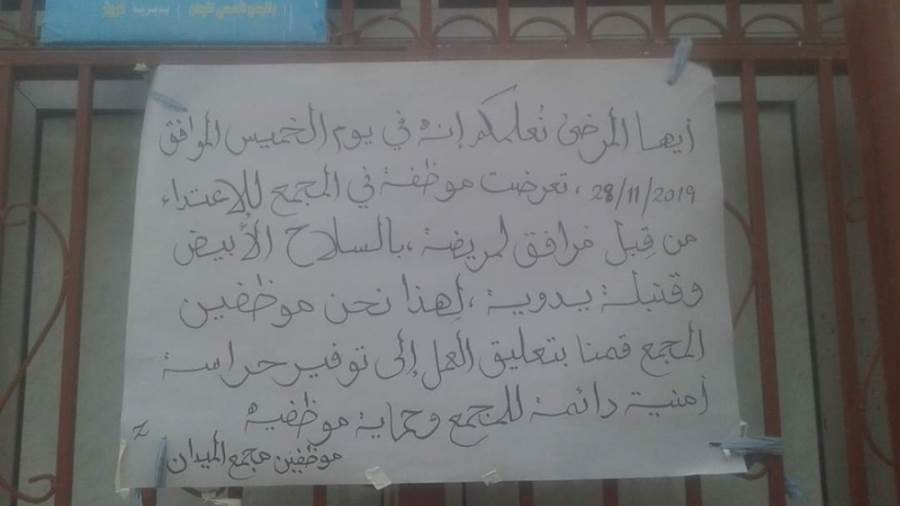 مديرية
أيها المرضى نُعلمكم إنه في يوم الخميس الموافق
28/11/2019 ، تعرضت موظفة في المجمع للإعتداء
من قِبل مرافق لمريضة ،بالسلاح الأبيض
وقنبلة يدوية ، لِهذا نحن موظفين
المجمع قمنا بتعليق العمل إلى توفير حراسة
أمنية دائمة للمجمع وحماية موظفيه
موظفين مجمع الميدان